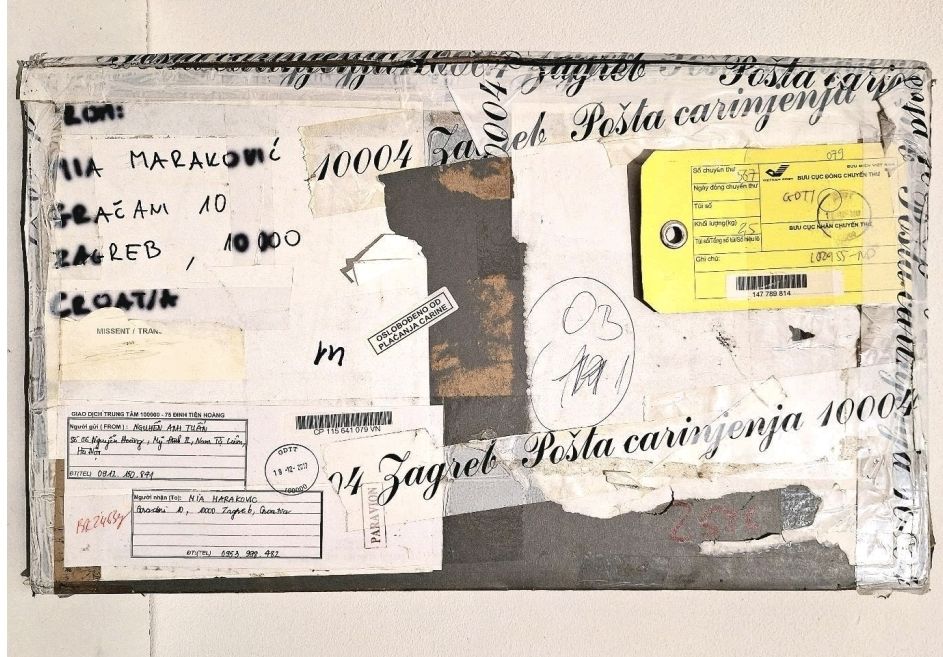 Pošta carinjenja 10004 Zagreb Pošta carinjenja
10004 Zagreb Pošta carinjenja
10004
FROM:
MIA MARAKOVIĆ
GRAČANI 10
ZAGREB, 10000
CROATIA
MISSENT / TRAN
m
OSLOBOĐENO OD
PLAĆANJA CARINE
03
079
BƯU CHÍNH VIỆT NAM
Số chuyến thư 567
BƯU CỤC ĐÓNG CHUYẾN THƯ
Ngày đóng chuyến thư
GDTT
Túi số
Khối lượng(kg) 25
BƯU CỤC NHẬN CHUYẾN THƯ
Túi số/Tổng số túi/Số hiệu lô
Ghi chú:
147 789 814
04 Zagreb Pošta carinjenja 10004
GIAO DỊCH TRUNG TÂM 100000 - 75 ĐINH TIÊN HOÀNG
Người gửi (FROM): NGUYỄN ANH TUẤN
Số 06 Nguyễn Hoàng, Mỹ Đình 2, Nam Từ Liêm,
Hà Nội
ĐT(TEL) 0912 150 841
CP 115 641 079 VN
GDTT
100000
Người nhận (To): MIA MARAKOVIC
10, 10000 Zagreb, Croatia
ĐT(TEL) 0953 998 482
PARAVION